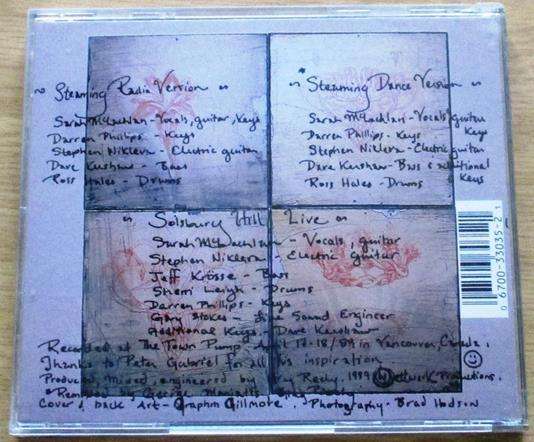 ~ Steaming Radio Version ~
Sarah McLachlan - Vocals, guitar, Keys
Darren Phillips - Keys
Stephen Nikleva - Electric guitar
Dave Kershaw - Bass
Ross Hales - Drums
~ Steaming Dance Version ~
Sarah McLachlan - Vocals guitar Keys
Darren Phillips - Keys
Stephen Nikleva - Electric guitar
Dave Kershaw - Bass & additional Keys
Ross Hales - Drums
~ Solsbury Hill Live ~
Sarah McLachlan - Vocals, guitar
Stephen Nikleva - Electric guitar
Jeff Krosse - Bass
Sherri Leigh - Drums
Darren Phillips - Keys
Gary Stokes - Live Sound Engineer
Additional Keys - Dave Kershaw
Recorded at The Town Pump April 17-18/89 in Vancouver, Canada.
Thanks to Peter Gabriel for all his inspiration
Produced, Mixed, engineered by Reely. 1989 Nettwerk Productions.
*Remixed by George
Cover & back Art - Graphm Gillmore. Photography - Brad Hodson
0 6700-33035-2 1